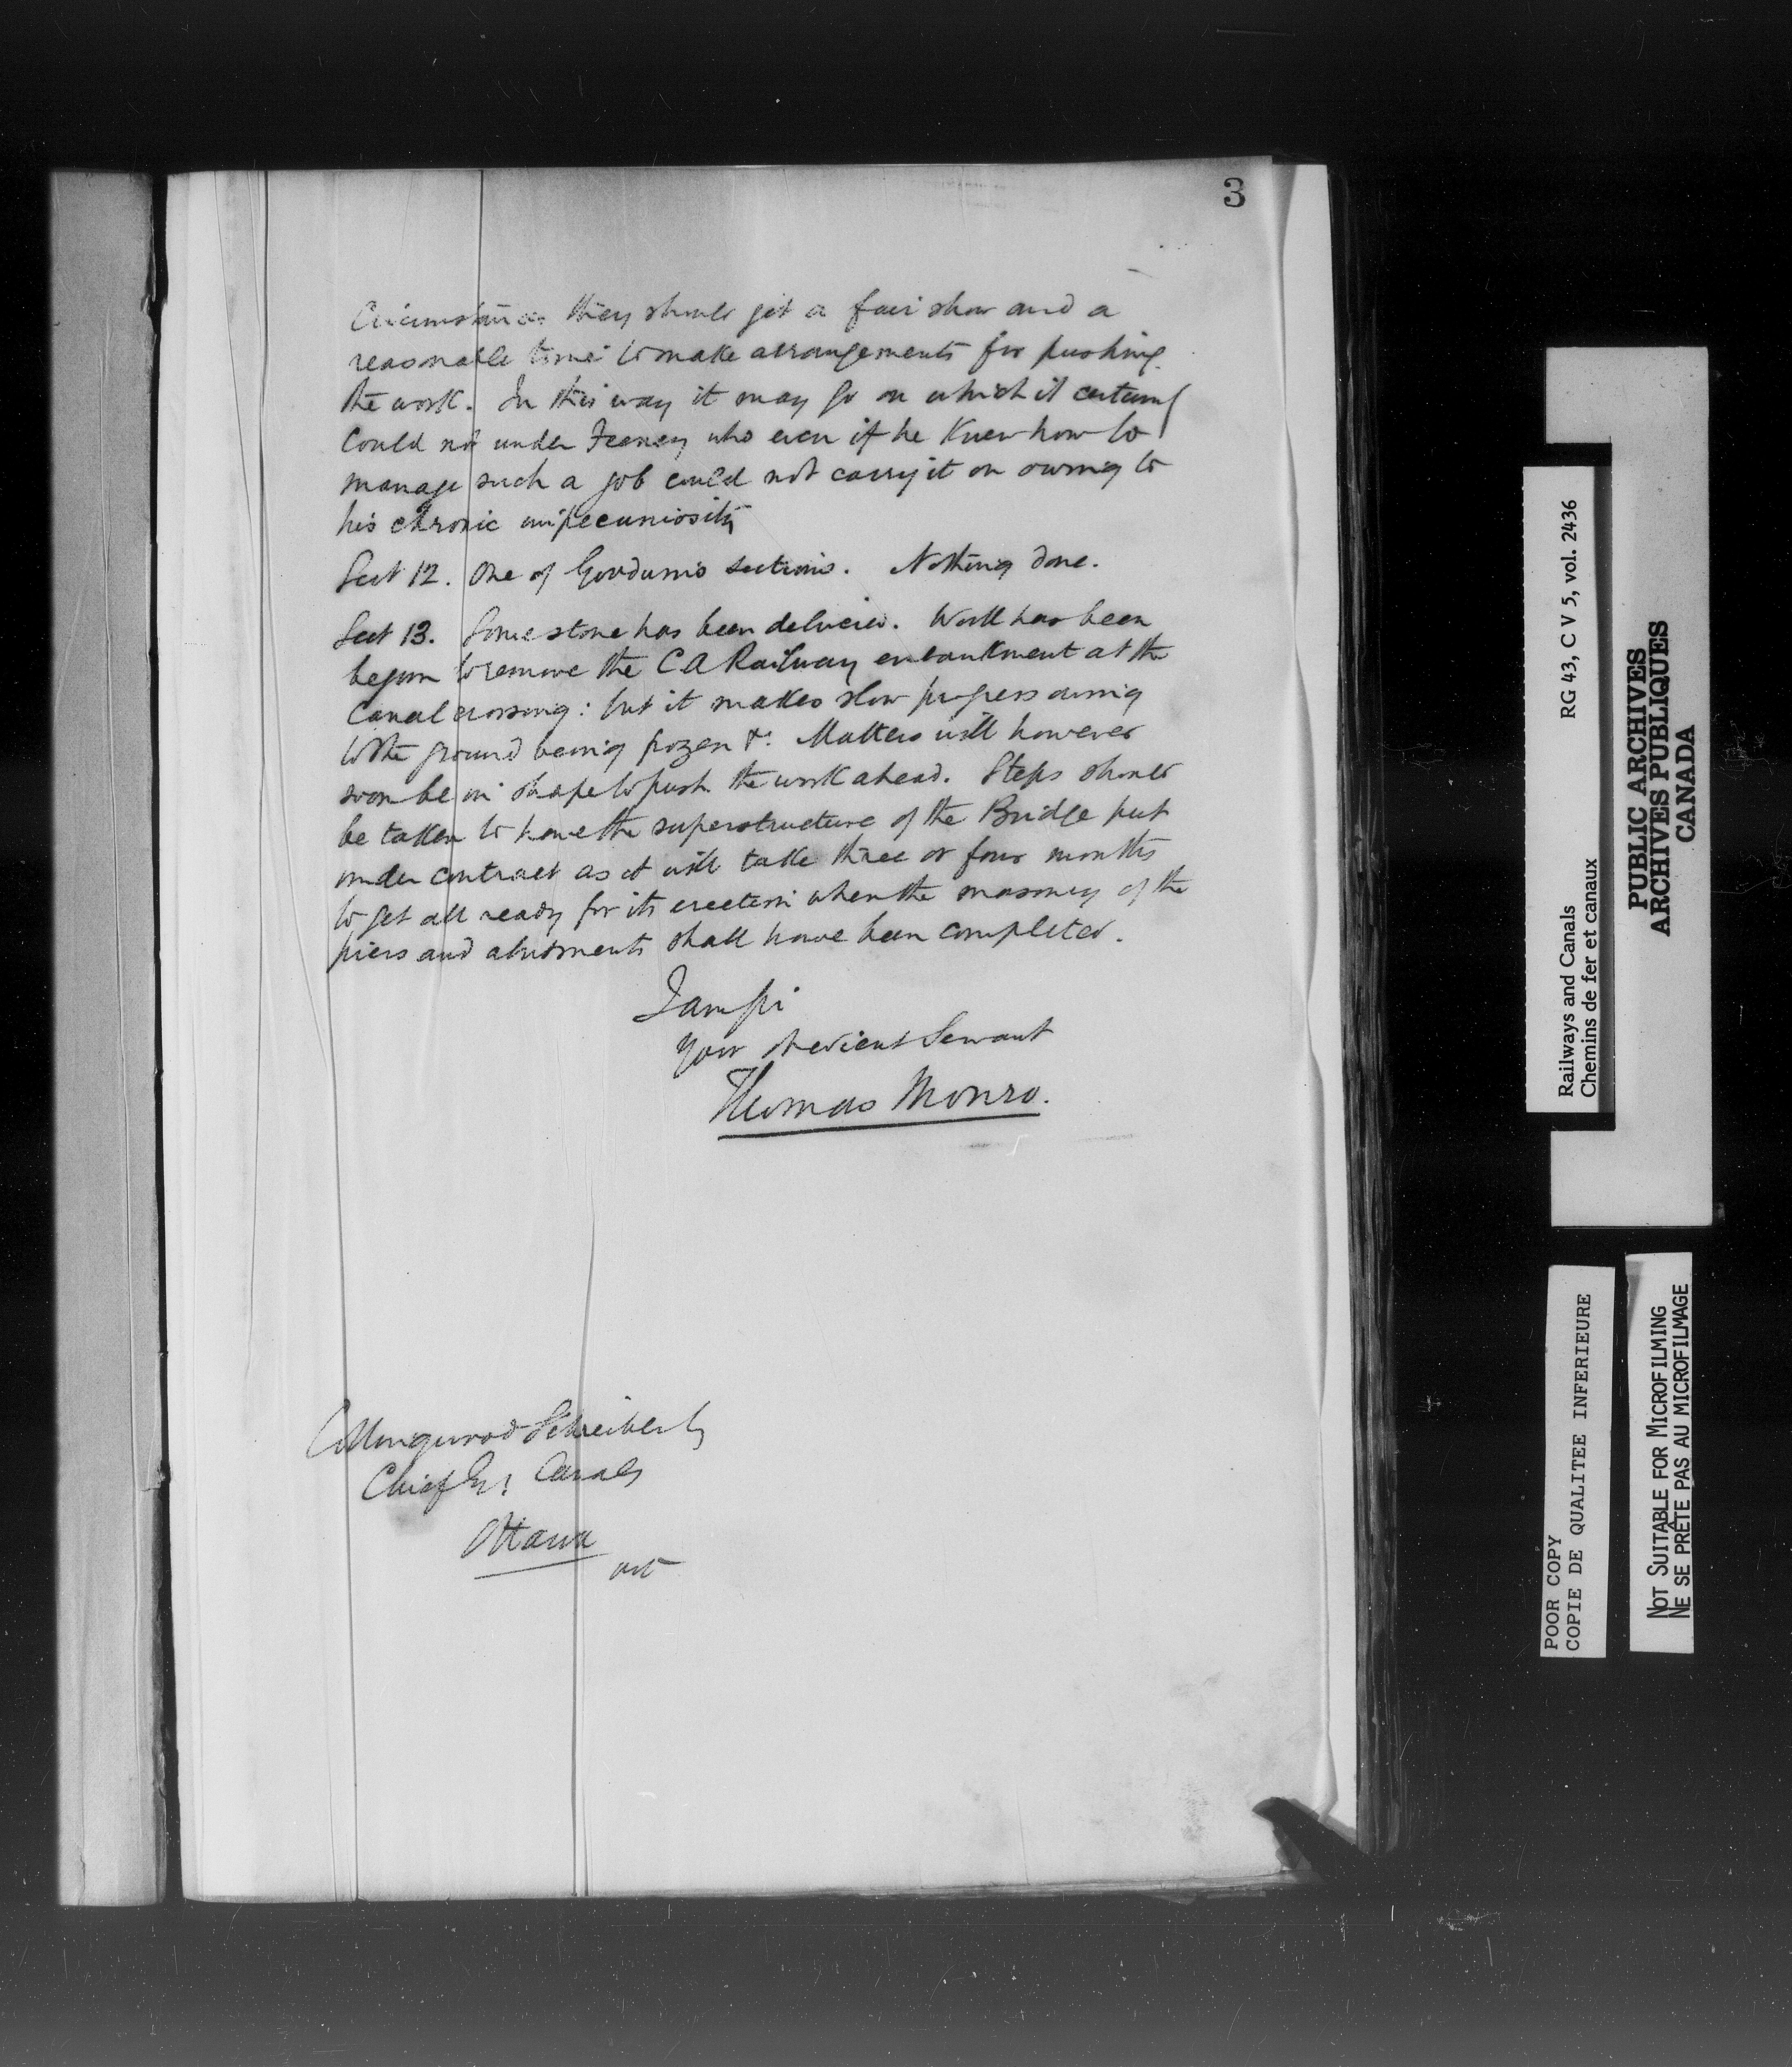 3
Circumstances they should get a fair show and a
reasonable time to make arrangements for pushing
the work. In this way it may go on which it certainly
could not under Feeney who even if he knew how to
manage such a job could not carry it on owing to
his chronic impecuniosity
Sect 12. One of Goodwin's sections. Nothing done.
Sect 13. Some stone has been delivered. Work has been
begun to remove the C A Railway embankment at the
Canal crossing: but it makes slow progress owing
to the ground being frozen &c. Matters will however
soon be in shape to push the work ahead. Steps should
be taken to have the superstructure of the Bridge put
under contract as it will take three or four months
to get all ready for its erection when the masonry of the
piers and abutments shall have been completed.
I am Sir
Your obedient Servant
Thomas Monro.
Collingwood Schreiber Esq
Chief Engr Canals
Ottawa
Ont
Railways and Canals RG 43, C V 5, vol. 2436
Chemins de fer et canaux
PUBLIC ARCHIVES
ARCHIVES PUBLIQUES
CANADA
POOR COPY
COPIE DE QUALITEE INFERIEURE
NOT SUITABLE FOR MICROFILMING
NE SE PRÊTE PAS AU MICROFILMAGE